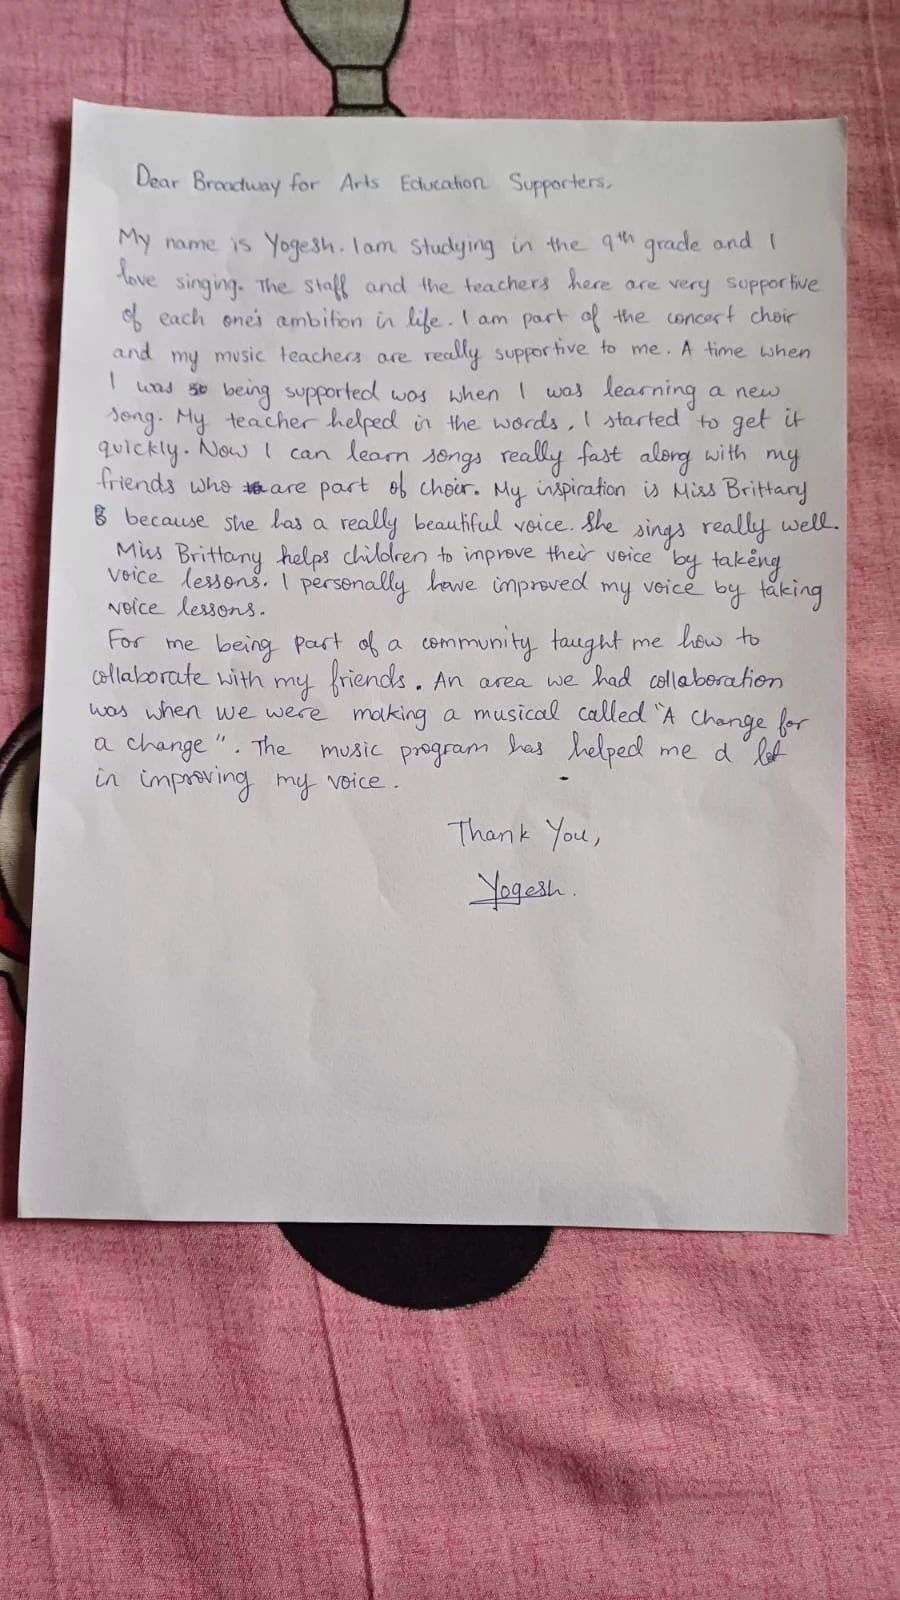 Dear Broadway for Arts Education Supporters,
My name is Yogesh. I am studying in the 9th grade and I
love singing. The staff and the teachers here are very supportive
of each one's ambition in life. I am part of the concert choir
and my music teachers are really supportive to me. A time when
I was being supported was when I was learning a new
song. My teacher helped in the words, I started to get it
quickly. Now I can learn songs really fast along with my
friends who are part of choir. My inspiration is Miss Brittany
because she has a really beautiful voice. She sings really well.
Miss Brittany helps children to improve their voice by taking
voice lessons. I personally have improved my voice by taking
voice lessons.
For me being part of a community taught me how to
collaborate with my friends. An area we had collaboration
was when we were making a musical called "A Change for
a change". The music program has helped me a lot
in improving my voice.
Thank You,
Yogesh.